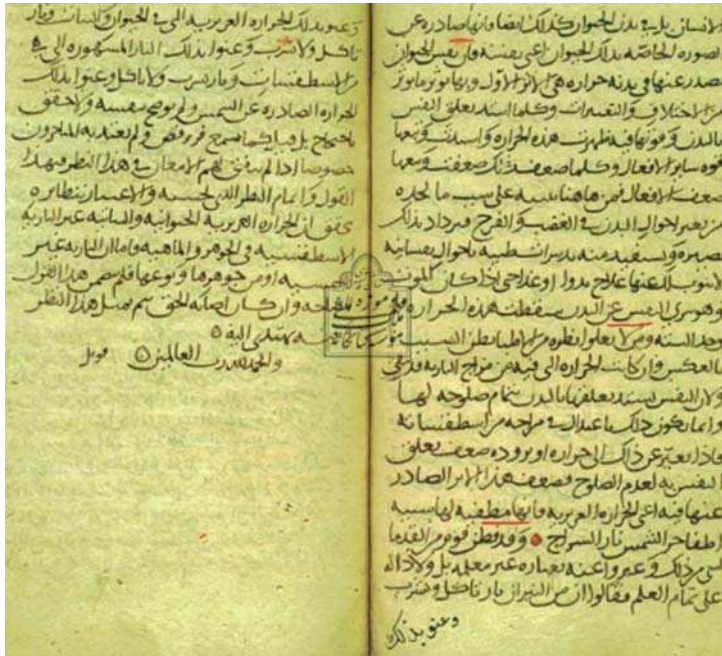 الانسان بل في بدن الحيوان كذلك ايضا فانها صادره عن
الصوره الخاصه بذلك الحيوان اعني نفسه فان نفس الحيوان
يصدر عنها في بدنه حراره هي الاثر الاول وربما توثر ما توثر
من الاختلاف والتغيرات وكلما اشتد تعلق النفس
بالبدن وقوتها فيه ظهرت هذه الحراره واشتدت وتبعها
قوه ساير الافعال وكلما ضعف ذلك ضعفت وتبعها
ضعف الافعال فمن هاهنا يتنبه على سبب ما تجده
من تغير احوال البدن في الغضب والفرح فيزداد بذلك
بصيره ويستفيد منه تدبيرات طبيه باحوال نفسانيه
لا ينوب لك عنها علاج بدوا او غذا حتى اذا كان الموت
وهو تبري النفس عن البدن سقطت هذه الحراره
وجد السنه ومن لا يعلو نظره من الاطبا يظن السبب
بالعكس وان كانت الحراره التي فيه من مزاج الناريه قد بقي
ولان النفس يشتد تعلقها بالبدن بتمام صلوحه لها
وانما يكون ذلك باعتدال في مزاجه من اسطقساته
فاذا تغير عن ذلك الى حراره او بروده ضعف تعلق
النفس به لعدم الصلوح فضعف هذا الاثر الصادر
عنها فيه اعني الحراره الغريزيه فانها مطفيه لها شبيه
اطفا حر الشمس نار السراج وقد فطن قوم من القدما
لشي من ذلك وعبروا عنه بعباره غير معلمه بل ولا داله
على تمام العلم فقالوا ان من النيران نار تاكل وتشرب
وعنوا بذلك
وعنوا بذلك الحراره الغريزيه التي في الحيوان والنبات ونار
تاكل ولا تشرب وعنوا بذلك النار المشهوره التي في
من الاسطقسات ونار تشرب ولا تاكل وعنوا بذلك
الحراره الصادره عن الشمس ولم يوضح بتفسير ولا حقق
باحتجاج بل قيل كما سمع فرفض ولم يعتد به المتاخرون
خصوصا اذا لم يتفق لهم الامعان في هذا النظر فبهذا
القول وباتمام النظر الذي بحسبه والاعتبار بنظايره
يحقق ان الحراره الغريزيه الحيوانيه والنباتيه غير الناريه
الاسطقسيه في الجوهر والماهيه واما ان الناريه غير
الشمسيه او من جوهرها ونوعها فلم يتضمن هذا القول
وان كان اصابه الحق يتم بمثل هذا النظر
يهتدي اليه
والحمد لله رب العالمين قوبل